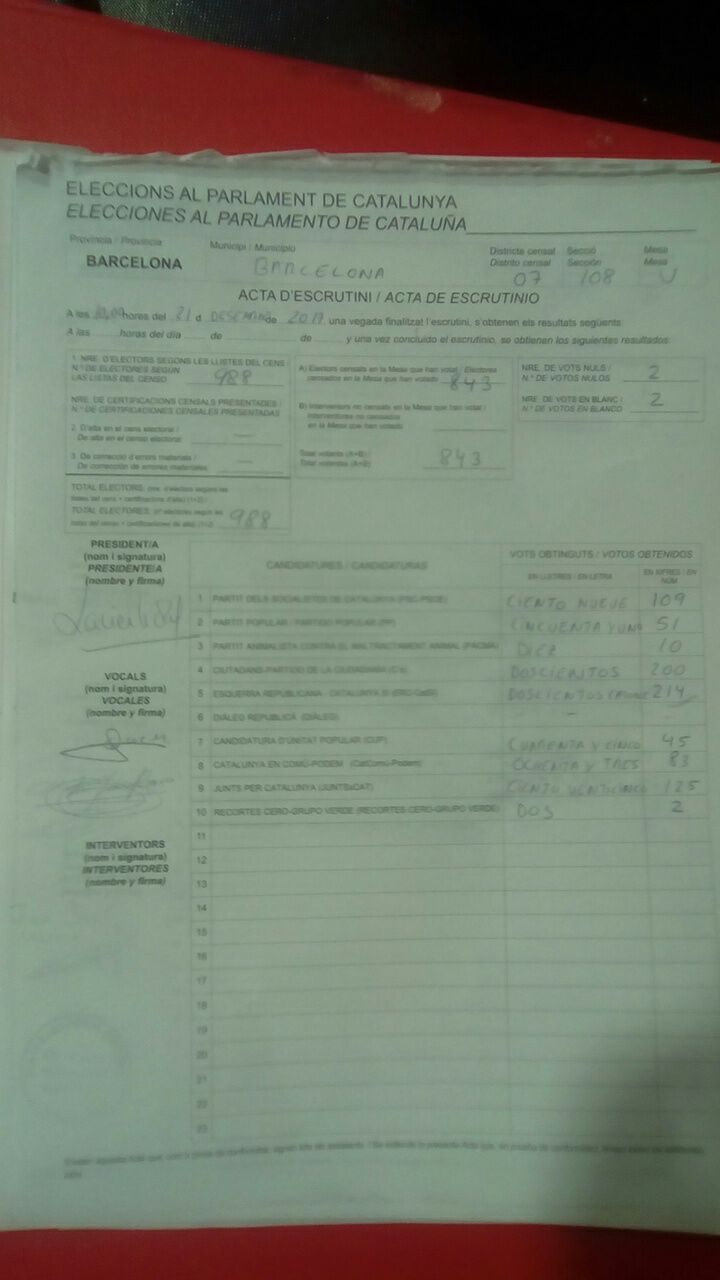 ELECCIONS AL PARLAMENT DE CATALUNYA
ELECCIONES AL PARLAMENTO DE CATALUÑA
Província / Provincia
BARCELONA
Municipi / Municipio
BARCELONA
Districte censal Secció Mesa
Distrito censal Sección Mesa
07 108 U
ACTA D'ESCRUTINI / ACTA DE ESCRUTINIO
A les hores del 21 d de 2017, una vegada finalitzat l'escrutini, s'obtenen els resultats següents
A las horas del día de de y una vez concluido el escrutinio, se obtienen los siguientes resultados:
1. NRE. D'ELECTORS SEGONS LES LLISTES DEL CENS /
N.º DE ELECTORES SEGÚN
LAS LISTAS DEL CENSO 988
NRE. DE CERTIFICACIONS CENSALS PRESENTADES /
N.º DE CERTIFICACIONES CENSALES PRESENTADAS
2. D'alta en el cens electoral /
De alta en el censo electoral —
3. De correcció d'errors materials /
De corrección de errores materiales —
TOTAL ELECTORS:
TOTAL ELECTORES:
988
A) Electors censats en la Mesa que han votat / Electores
censados en la Mesa que han votado 843
B) Interventors no censats en la Mesa que han votat /
Interventores no censados
en la Mesa que han votado
Total votants (A+B) /
Total votantes (A+B) 843
NRE. DE VOTS NULS /
N.º DE VOTOS NULOS 2
NRE. DE VOTS EN BLANC /
N.º DE VOTOS EN BLANCO 2
PRESIDENT/A
(nom i signatura)
PRESIDENTE/A
(nombre y firma)
VOCALS
(nom i signatura)
VOCALES
(nombre y firma)
INTERVENTORS
(nom i signatura)
INTERVENTORES
(nombre y firma)
CANDIDATURES / CANDIDATURAS
VOTS OBTINGUTS / VOTOS OBTENIDOS
EN LLETRES / EN LETRA
EN XIFRES / EN NÚM
1 PARTIT DELS SOCIALISTES DE CATALUNYA (PSC-PSOE) CIENTO NUEVE 109
2 PARTIT POPULAR / PARTIDO POPULAR (PP) CINCUENTA Y UNO 51
3 PARTIT ANIMALISTA CONTRA EL MALTRACTAMENT ANIMAL (PACMA) DIEZ 10
4 CIUTADANS-PARTIDO DE LA CIUDADANÍA (C's) DOSCIENTOS 200
5 ESQUERRA REPUBLICANA - CATALUNYA SÍ (ERC-CatSí) DOSCIENTOS 214
6 DIÀLEG REPÚBLICA (DIÀLEG) - -
7 CANDIDATURA D'UNITAT POPULAR (CUP) CUARENTA Y CINCO 45
8 CATALUNYA EN COMÚ-PODEM (CatComú-Podem) OCHENTA Y TRES 83
9 JUNTS PER CATALUNYA (JUNTSxCAT) CIENTO VEINTICINCO 125
10 RECORTES CERO-GRUPO VERDE (RECORTES CERO-GRUPO VERDE) DOS 2
11
12
13
14
15
16
17
18
19
20
21
22
23